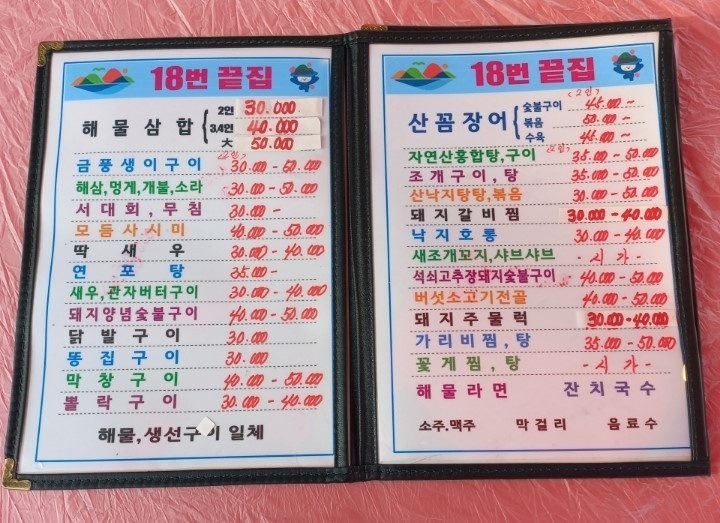 18번 끝집
해물삼합
2인 30.000
3,4인 40.000
大 50.000
금풍생이구이 (2인) 30.000 - 50.000
해삼,멍게,개불,소라 30.000 - 50.000
서대회,무침 30.000 -
모듬사시미 40.000 - 50.000
딱새우 30.000 - 40.000
연포탕 35.000 -
새우,관자버터구이 30.000 - 40.000
돼지양념숯불구이 40.000 - 50.000
닭발구이 30.000
똥집구이 30.000
막창구이 40.000 - 50.000
뽈락구이 30.000 - 40.000
해물,생선구이 일체
18번 끝집
산꼼장어 (2인)
숯불구이 45.000 ~
볶음 50.000 ~
수육 45.000 ~
자연산홍합탕,구이 (2인) 35.000 - 50.000
조개구이,탕 35.000 - 50.000
산낙지탕탕,볶음 30.000 - 50.000
돼지갈비찜 30.000 - 40.000
낙지호롱 30.000 - 40.000
새조개꼬지,샤브샤브 - 시가 -
석쇠고추장돼지숯불구이 40.000 - 50.000
버섯소고기전골 40.000 - 50.000
돼지주물럭 30.000 - 40.000
가리비찜,탕 35.000 - 50.000
꽃게찜,탕 - 시가 -
해물라면 잔치국수
소주.맥주 막걸리 음료수